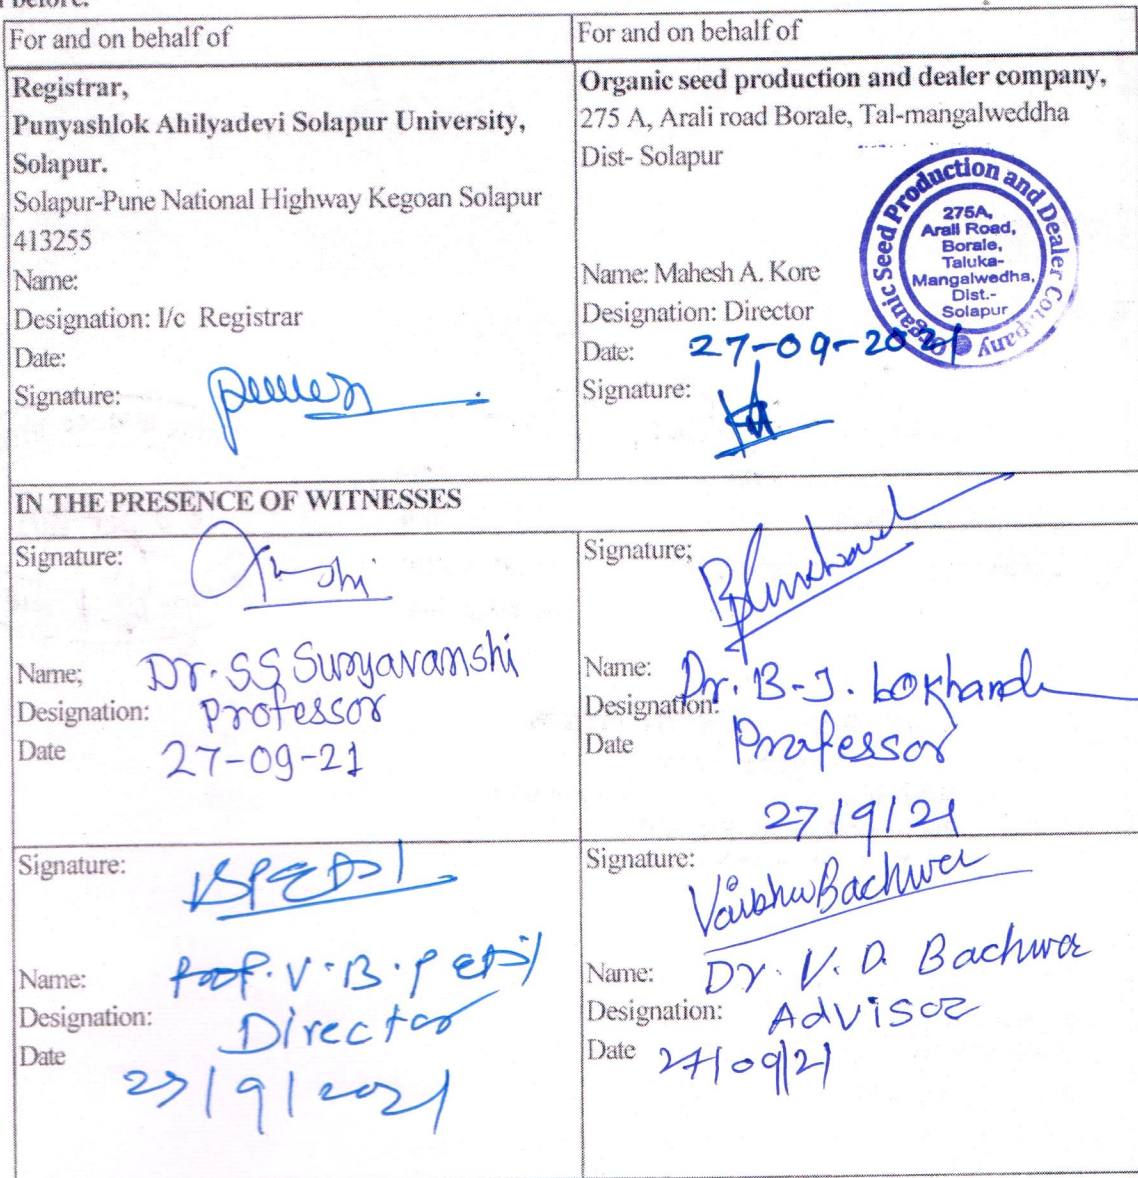 before.
For and on behalf of
For and on behalf of
Registrar,
Punyashlok Ahilyadevi Solapur University,
Solapur.
Solapur-Pune National Highway Kegoan Solapur
413255
Name:
Designation: I/c Registrar
Date:
Signature:
Organic seed production and dealer company,
275 A, Arali road Borale, Tal-mangalweddha
Dist- Solapur
Name: Mahesh A. Kore
Designation: Director
Date: 27-09-2021
Signature:
Organic Seed Production and Dealer Company
275A,
Arali Road,
Borale,
Taluka-
Mangalwedha,
Dist.-
Solapur
IN THE PRESENCE OF WITNESSES
Signature:
Name; Dr. SS Suryavanshi
Designation: Professor
Date 27-09-21
Signature;
Name: Dr. B-J. Lokhande
Designation: Professor
Date 27/9/21
Signature:
Name: Prof. V. B. Patil
Designation: Director
Date 27/9/2021
Signature: Vaibhav Bachwar
Name: Dr. V. D. Bachwar
Designation: Advisor
Date 27/09/21